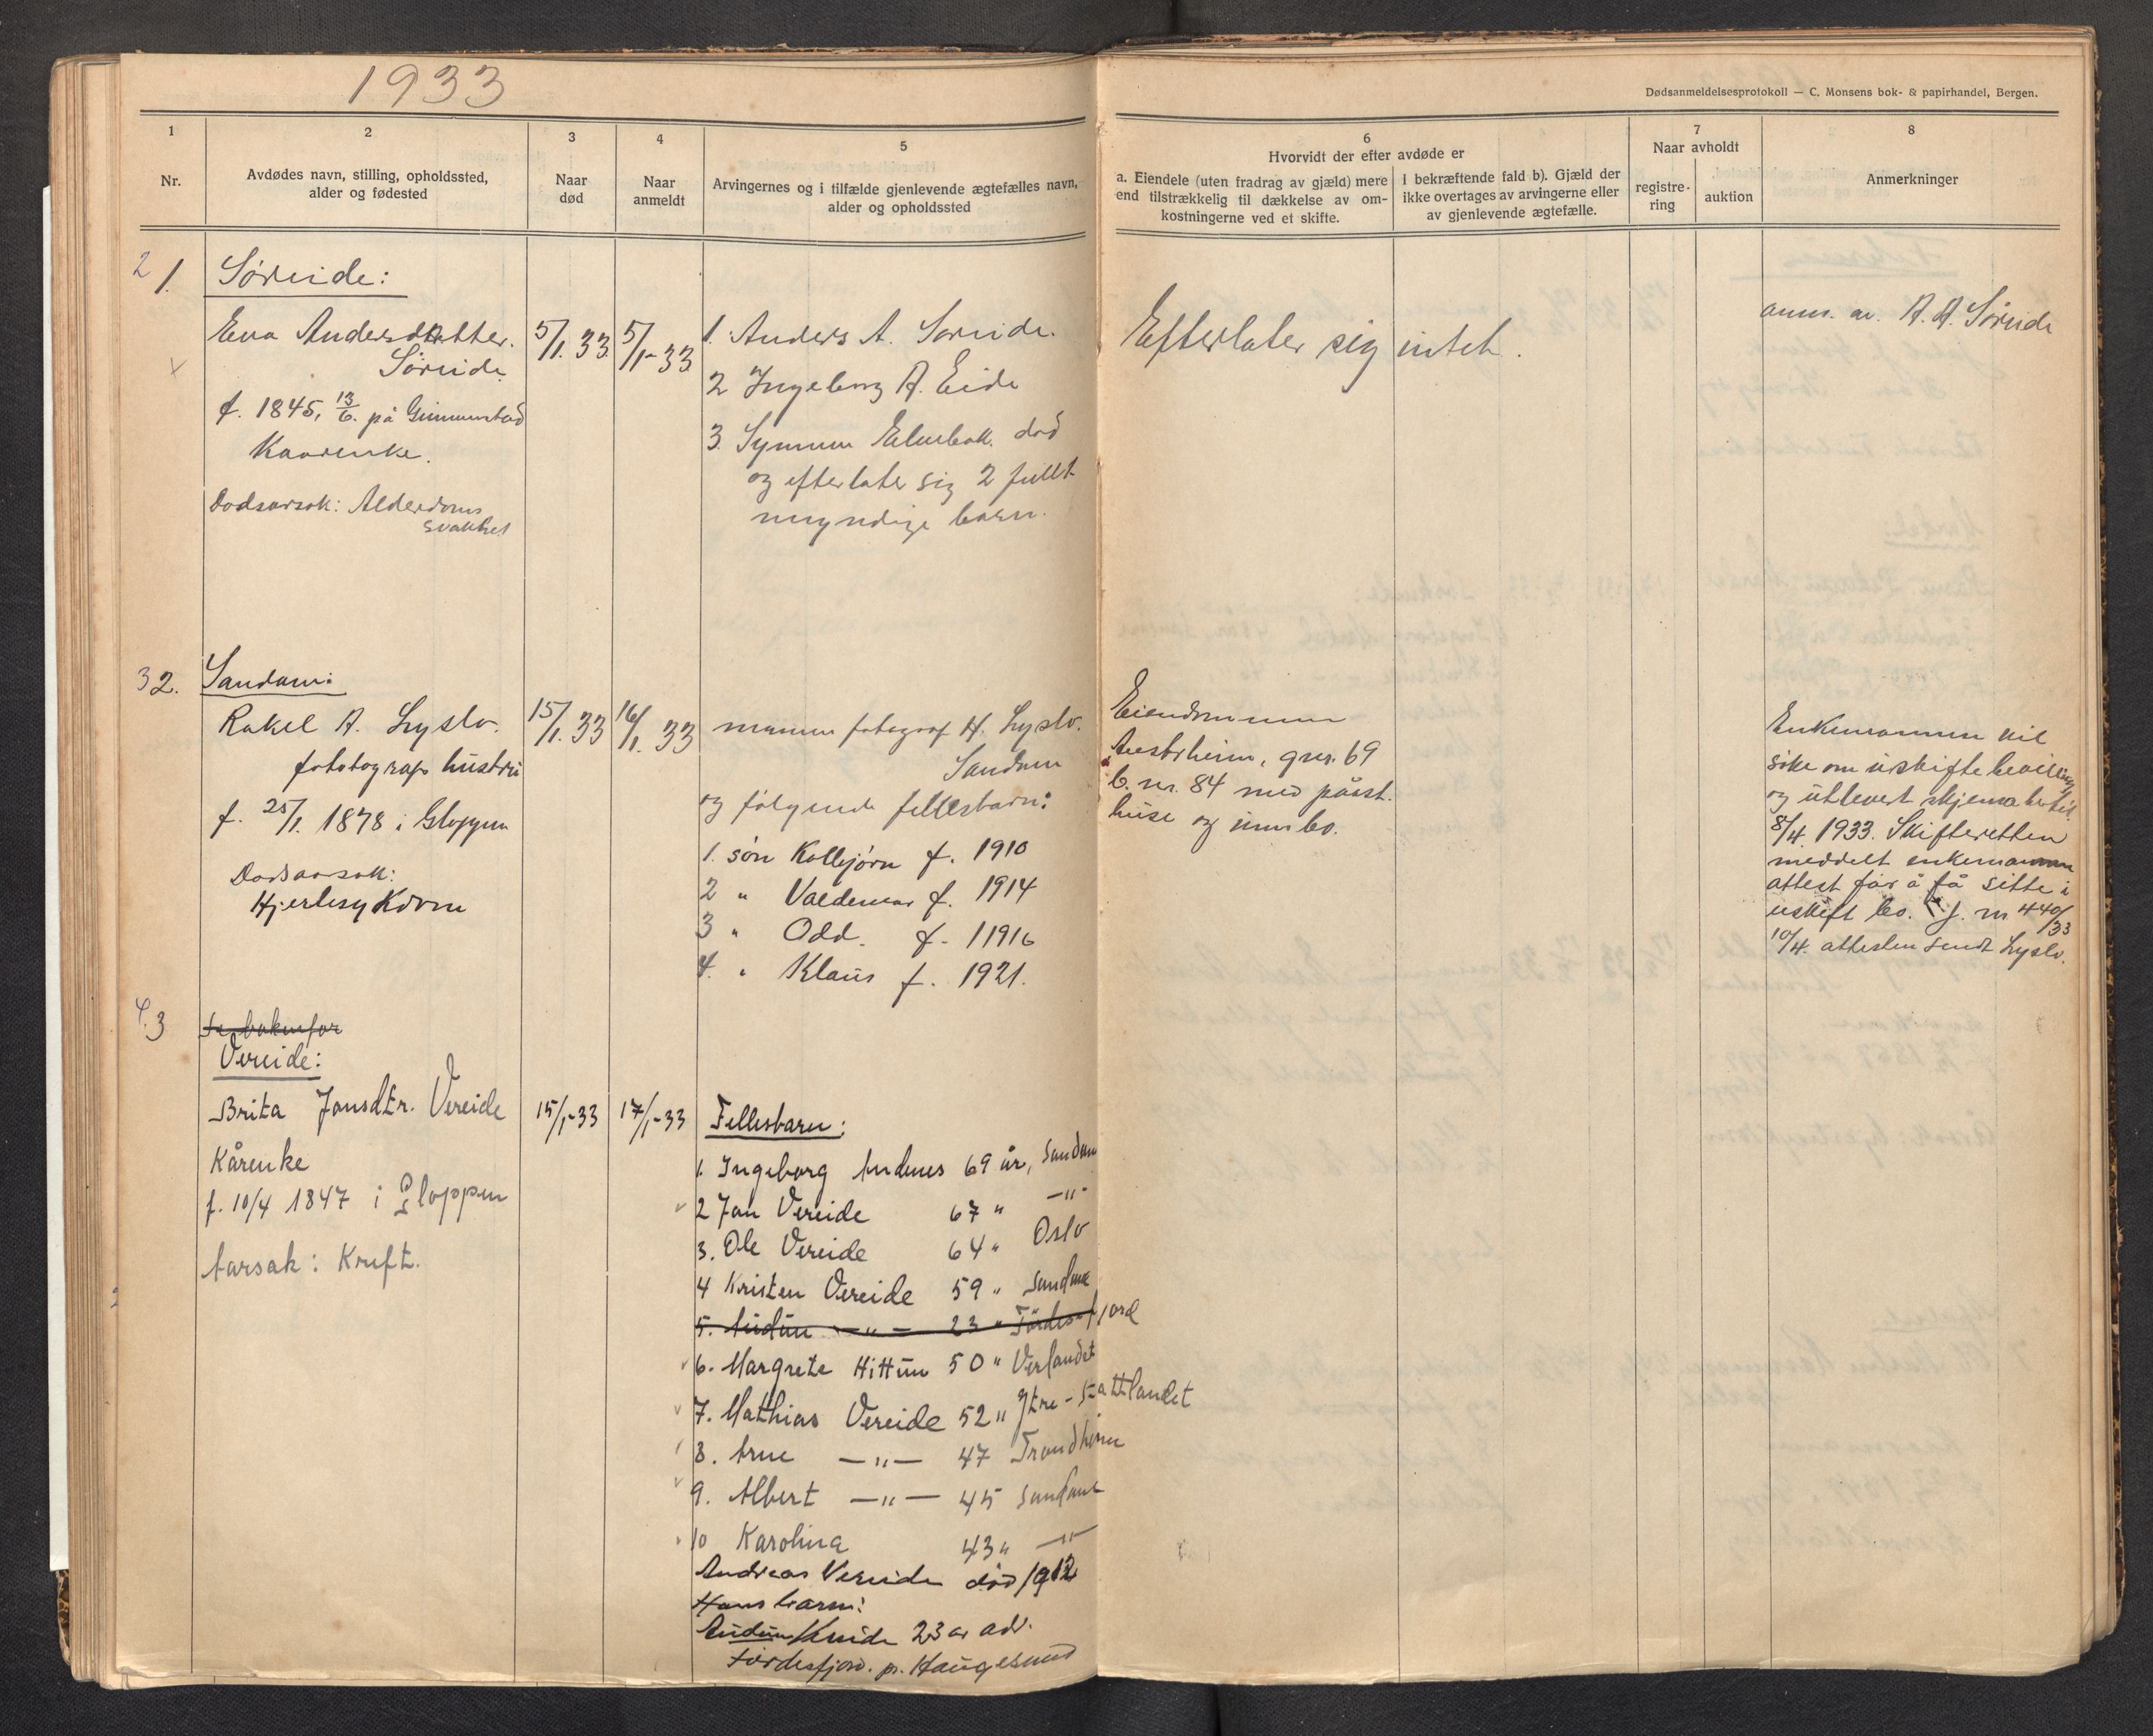 1933
Dødsanmeldelsesprotokoll — C. Monsens bok- & papirhandel, Bergen.
1
Nr.
2
Avdødes navn, stilling, opholdssted,
alder og fødested
3
Naar
død
4
Naar
anmeldt
5
Arvingernes og i tilfælde gjenlevende ægtefælles navn,
alder og opholdssted
6
Hvorvidt der efter avdøde er
a. Eiendele (uten fradrag av gjæld) mere
end tilstrækkelig til dækkelse av om-
kostningerne ved et skifte.
I bekræftende fald b). Gjæld der
ikke overtages av arvingerne eller
av gjenlevende ægtefælle.
7
Naar avholdt
registre-
ring
auktion
8
Anmerkninger
2 1.
Søreide:
Eva Andersdatter.
Søreide
f. 1845, 13/6. på
Kaarenke.
Dødsårsak: Alderdoms
svakhet
5/1. 33
5/1-33
1. Anders A. Søreide.
2 Ingeborg A. Eide
3. Synneva død
og efterlater sig 2 fullt
myndige barn.
Efterlater sig intet.
anm. av. A. A. Søreide
3 2.
Sandane:
Rakel A. Lyslo.
fotograf hustru
f. 25/1. 1878 i Gloppen
Dødsaarsak:
Hjertesykdom
15/1. 33
16/1. 33
mannen fotograf H. Lyslo.
Sandane
og følgende fellesbarn:
1. søn Kolbjørn f. 1910
2 " Valdemar f. 1914
3 " Odd. f. 11916
4. " Klaus f. 1921.
Eiendommen
Austrheim, gnr. 69
b. nr. 84 med påst.
huse og innbo.
Enkemannen vil
søke om uskiftebevilling
og utlevert skjema hertil.
8/4. 1933. Skifteretten
meddelt enkemannen
attest for å få sitte i
uskift bo. j. nr 440/33
10/4. attesten sendt Lyslo.
4. 3
Se bakenfor
Vereide:
Brita Jonsdtr. Vereide
Kårenke
f. 10/4 1847 i Gloppen
Aarsak: Kreft.
15/1-33
17/1-33
Fellesbarn:
1. Ingeborg Andenes 69 år, Sandane
2 Jon Vereide 67 " —"—
3. Ole Vereide 64 " Oslo
4 Kristen Vereide 59 " Sandane
5. Audun —"— 23 " Førdesfjord
6. Margrete Hittun 50 " Verlandet
7. Mathias Vereide 52 " Ytre-Stattlandet
8. Arne —"— 47 Trondheim
9. Albert —"— 45 Sandane
10 Karolina 43 " —"—
Andreas Vereide død 1912
Hans barn:
Audun Vereide 23 år adr.
Førdesfjord. pr. Haugesund